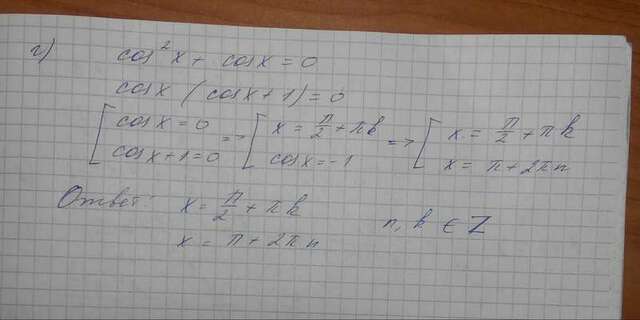 г) cos²x + cosx = 0
cosx (cosx + 1) = 0
[ cosx = 0 => [ x = π/2 + πk => [ x = π/2 + πk
cosx + 1 = 0 cosx = -1 x = π + 2πn
Ответ: x = π/2 + πk n, k ∈ Z
x = π + 2πn